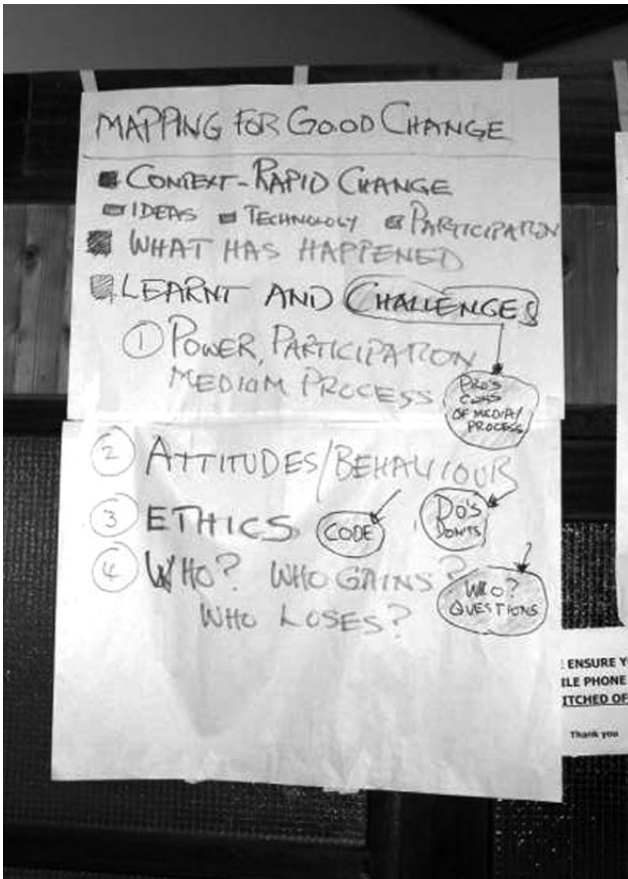 MAPPING FOR GOOD CHANGE
CONTEXT - RAPID CHANGE
IDEAS TECHNOLOGY PARTICIPATION
WHAT HAS HAPPENED
LEARNT AND CHALLENGES
1 POWER, PARTICIPATION
MEDIUM PROCESS
PRO'S
CONS
OF MEDIA/
PROCESS
2 ATTITUDES/BEHAVIOUR
3 ETHICS CODE
DO'S
DONTS
4 WHO? WHO GAINS?
WHO LOSES?
WHO?
QUESTIONS
ENSURE Y
ILE PHONE
ITCHED OF
Thank you